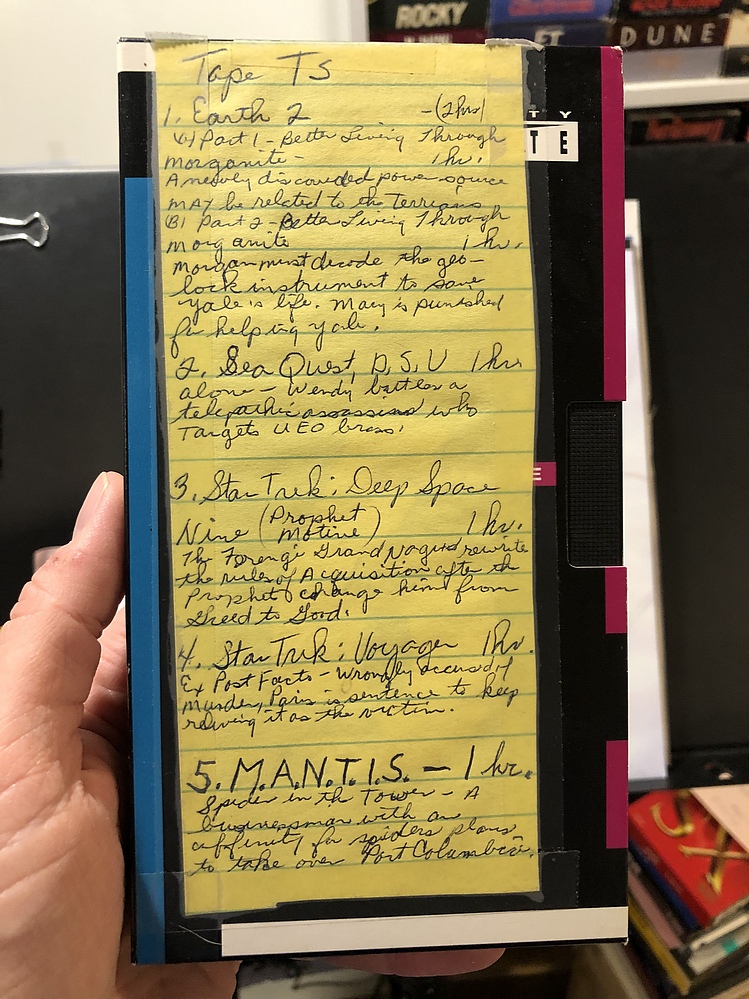 ROCKY
ET
DUNE
Tape TS
1. Earth 2 -(2hrs)
A) Part 1 - Better Living Through
morganite - 1 hr.
A newly discovered power source
may be related to the Terrians
(B) Part 2 - Better Living Through
morganite 1 hr.
morgan must decode the geo-
lock instrument to save
yale's life. Mary is punished
for helping yale.
2. Sea Quest, D, S, V 1 hr.
alone - Wendy battles a
telepathic assassins who
Targets UEO brass.
3. Star Trek: Deep Space
Nine (Prophet Motive) 1 hr.
The Ferengi Grand Nagus rewrite
the rules of Acquisition after the
Prophet change him from
Greed to Good.
4. Star Trek: Voyager 1 hr.
Ex Post Facto - Wrongly accused of
Murder, Paris is sentence to keep
reliving it as the victim.
5. M.A.N.T.I.S. - 1 hr.
Spider in the Tower - A
businessman with an
affinity for spiders plans
to take over Port Columbia.
TY
TE
E